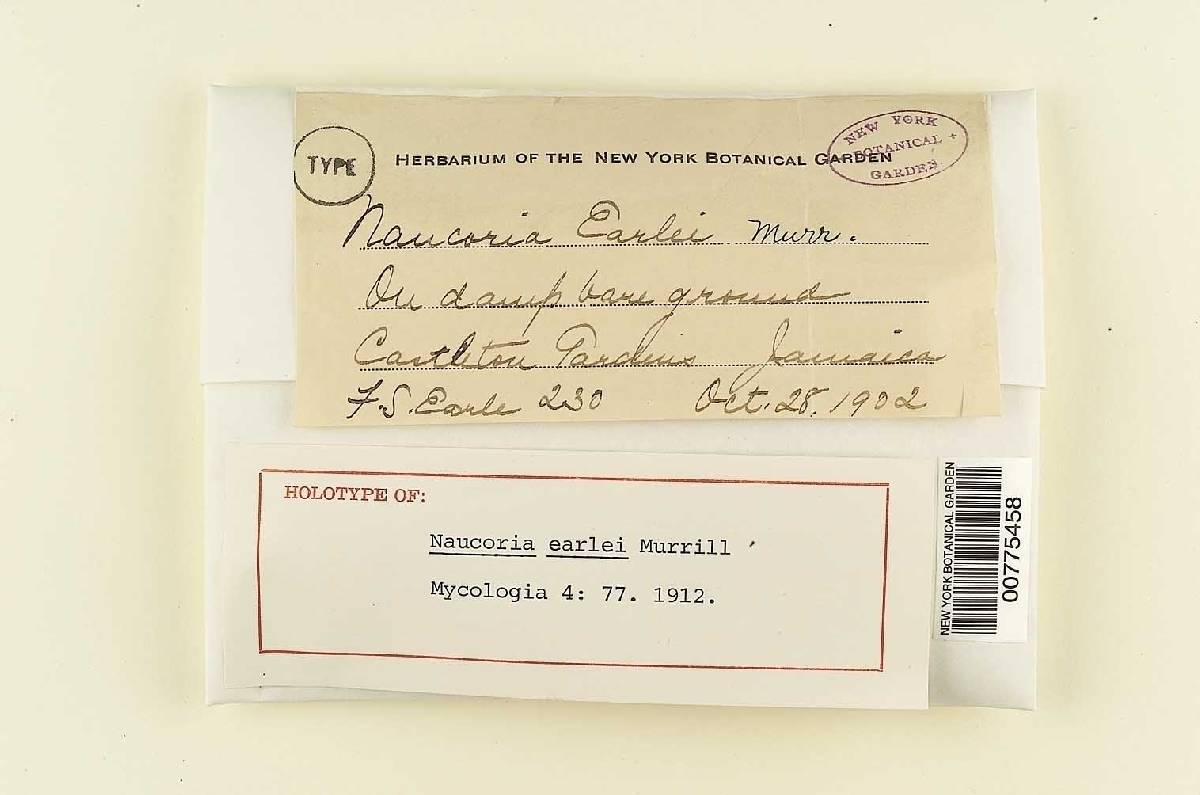 TYPE
HERBARIUM OF THE NEW YORK BOTANICAL GARDEN
NEW YORK
BOTANICAL
GARDEN
Naucoria Earlei Murr.
On damp bare ground
Castleton Gardens Jamaica
F.S. Earle 230 Oct. 28, 1902
HOLOTYPE OF:
Naucoria earlei Murrill
Mycologia 4: 77. 1912.
NEW YORK BOTANICAL GARDEN
00775458